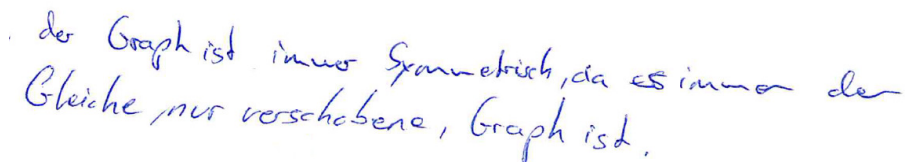 der Graph ist immer Symmetrisch, da es immer der
Gleiche, nur verschobene, Graph ist.